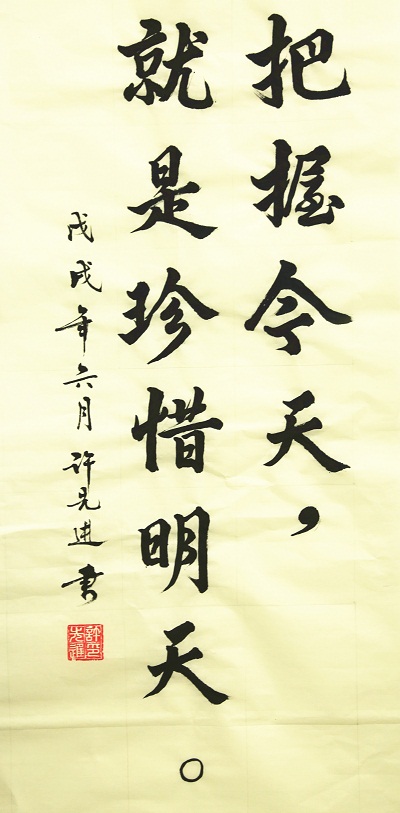 把握今天，
就是珍惜明天。
戊戌年六月 许先进 书
許印
先進